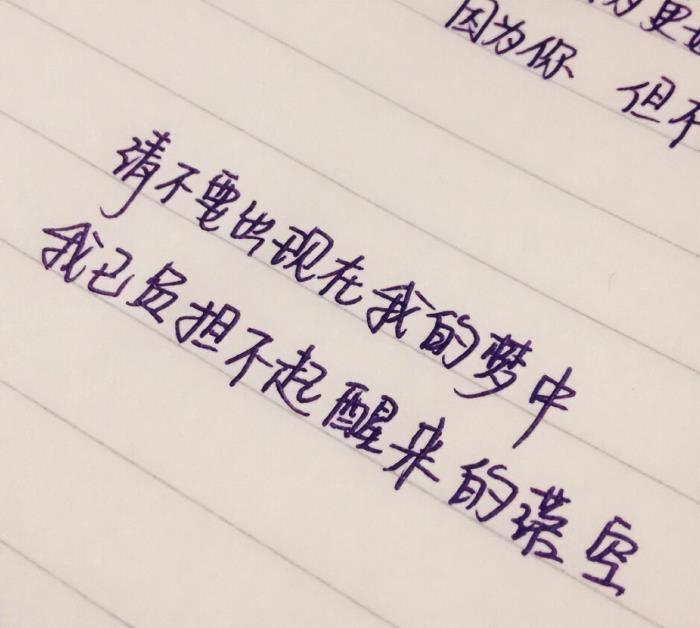 为更
因为你 但不
请不要出现在我的梦中
我已负担不起醒来的落空